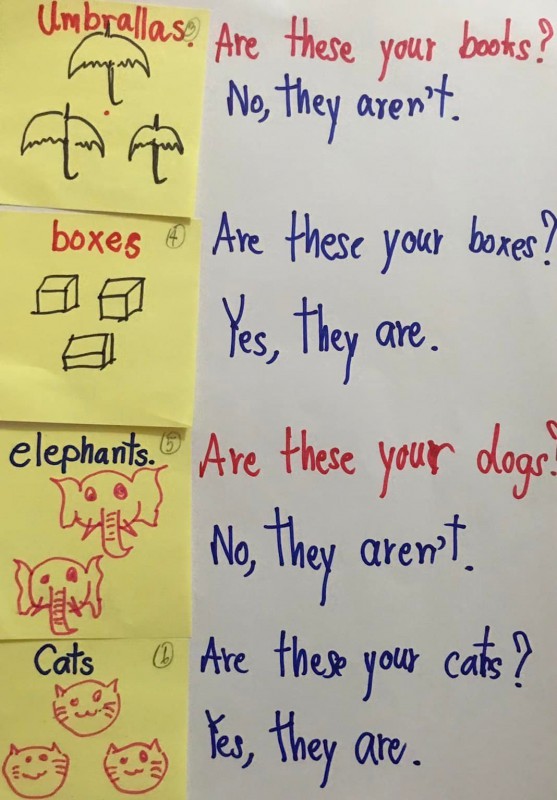 Umbrallas. 3
Are these your books?
No, they aren't.
boxes 4
Are these your boxes?
Yes, they are.
elephants. 5
Are these your dogs?
No, they aren't.
Cats 6
Are these your cats?
Yes, they are.